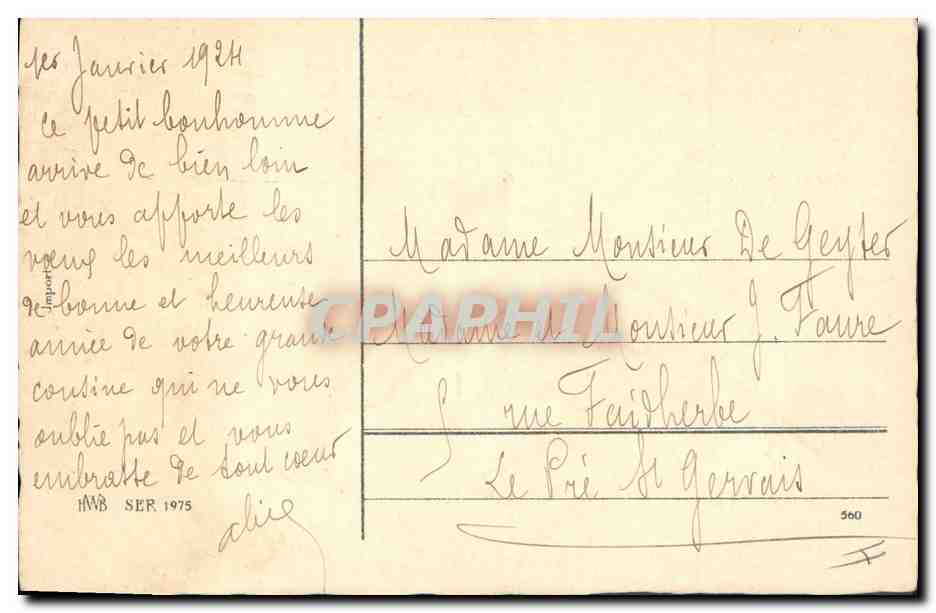 1er Janvier 1924
Ce petit bonhomme
arrive de bien loin
et vous apporte les
vœux les meilleurs
de bonne et heureuse
année de votre grande
cousine qui ne vous
oublie pas et vous
embrasse de tout cœur
Alice
Import
HWB SER 1975
Madame Monsieur De Geyter
Madame et Monsieur J. Faure
5 rue Faidherbe
Le Pré St Gervais
560
CPAPHIL